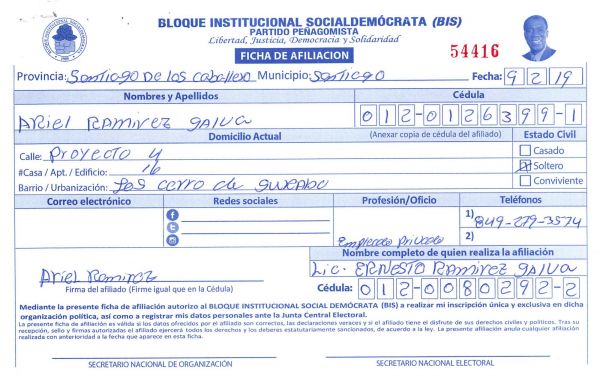 BLOQUE INSTITUCIONAL SOCIALDEMÓCRATA (BIS)
PARTIDO PEÑAGOMISTA
Libertad, Justicia, Democracia y Solidaridad
FICHA DE AFILIACION
54416
Provincia: Santiago De los caballero Municipio: Santiago Fecha: 9 2 19
Nombres y Apellidos Cédula
Ariel Ramirez galva 012-0126399-1
Domicilio Actual (Anexar copia de cédula del afiliado) Estado Civil
Calle: Proyecto 4 Casado
#Casa / Apt. / Edificio: 16 Soltero
Barrio / Urbanización: Los cerro de gurabo Conviviente
Correo electrónico Redes sociales Profesión/Oficio Teléfonos
1) 849-279-3574
Empleado Privado 2)
Nombre completo de quien realiza la afiliación
Ariel Ramirez Lic. ERNESTO Ramirez galva
Firma del afiliado (Firme igual que en la Cédula) Cédula: 012-0080292-2
Mediante la presente ficha de afiliación autorizo al BLOQUE INSTITUCIONAL SOCIAL DEMÓCRATA (BIS) a realizar mi inscripción única y exclusiva en dicha
organización política, así como a registrar mis datos personales ante la Junta Central Electoral.
La presente ficha de afiliación es válida si los datos ofrecidos por el afiliado son correctos, las declaraciones veraces y si el afiliado tiene el disfrute de sus derechos civiles y políticos. Tras su
recepción, sello y firmas autorizadas el afiliado ejercerá todos los derechos y los deberes estatutariamente sancionados, de acuerdo a la ley. La presente afiliación anula cualquier afiliación
realizada con anterioridad a la fecha que aparece en esta ficha.
SECRETARIO NACIONAL DE ORGANIZACIÓN SECRETARIO NACIONAL ELECTORAL